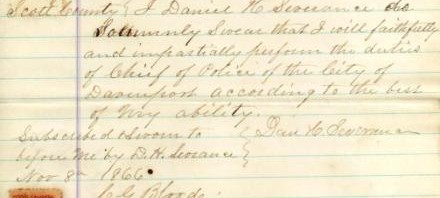 Scott County } I Daniel H. Severance do
Solommnly Swear that I will faithfully
and impartially perform the duties
of Chief of Police of the City of
Davenport according to the best
of my ability.
Subscribed & Sworn to } Dan H. Severance
before me by D. H. Severance }
Nov 8th 1866
C. G. Blood